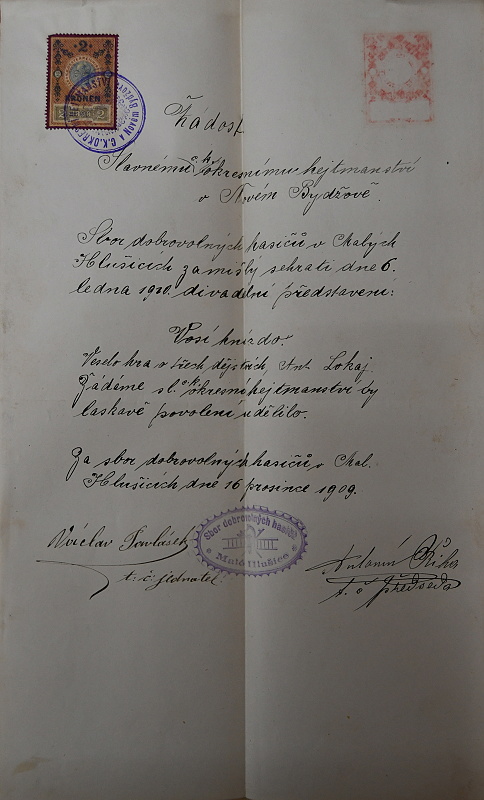 2
KONEN
2 2
C.K. OKRES. HEJTMANSTVÍ v Novém Bydžově
Žádost
Slavnému c. k. okresnímu hejtmanství
v Novém Bydžově.
Sbor dobrovolných hasičů v Malých
Hlušicích zamišlý sehrati dne 6.
ledna 1910. divadelní představení:
Vosí hnízdo.
Veselo hra v třech dějstvích, Ant. Lokaj.
Žádáme sl. c. k. okresní hejtmanství by
laskavě povolení udělilo.
Za sbor dobrovolných hasičů v Mal.
Hlušicích dne 16 prosince 1909.
Sbor dobrovolných hasičů
Malé Hlušice
Václav Pavlásek
t. č. jednatel.
Antonín
t. č. předseda